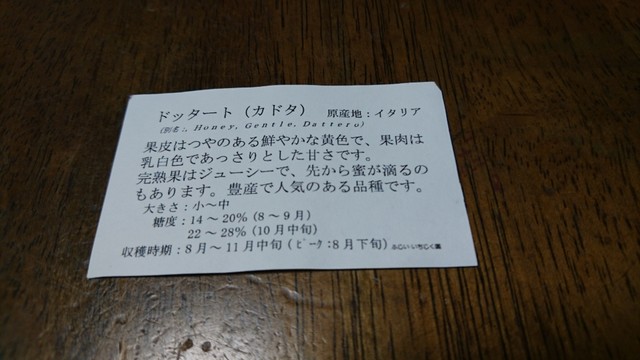 ドッタート（カドタ）　原産地：イタリア
(別名:, Honey, Gentle, Dattero)
果皮はつやのある鮮やかな黄色で、果肉は
乳白色であっさりとした甘さです。
完熟果はジューシーで、先から蜜が滴るの
もあります。豊産で人気のある品種です。
大きさ：小～中
糖度：14～20%（8～9月）
22～28%（10月中旬）
収穫時期：8月～11月中旬（ﾋﾟｰｸ：8月下旬） ふじい いちじく園